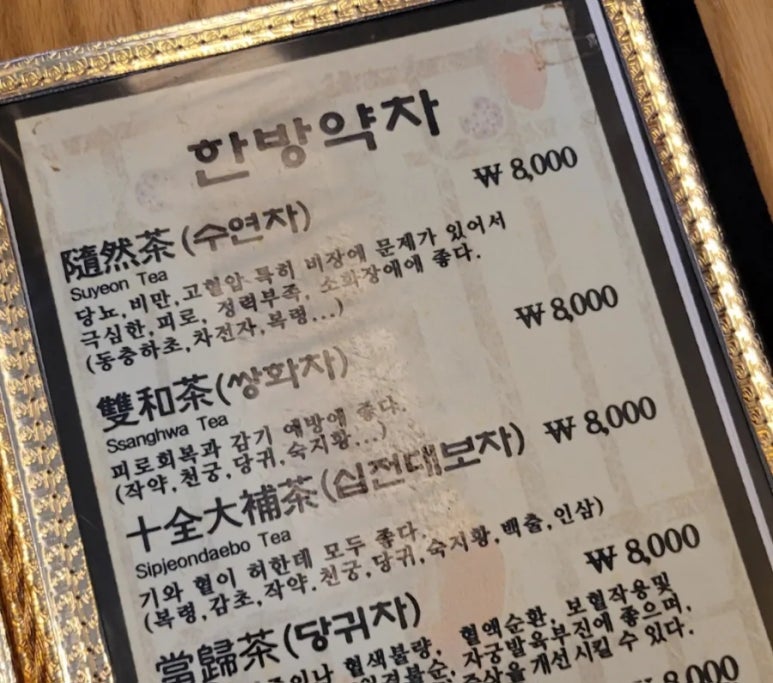 한방약차
隨然茶(수연차) ₩ 8,000
Suyeon Tea
당뇨,비만,고혈압 특히 비장에 문제가 있어서
극심한,피로, 정력부족, 소화장애에 좋다.
(동충하초,차전자,복령...)
雙和茶(쌍화차) ₩ 8,000
Ssanghwa Tea
피로회복과 감기 예방에 좋다.
(작약,천궁,당귀,숙지황...)
十全大補茶(십전대보차) ₩ 8,000
Sipjeondaebo Tea
기와 혈이 허한데 모두 좋다.
(복령,감초,작약.천궁,당귀,숙지황,백출,인삼)
當歸茶(당귀차) ₩ 8,000
혈색불량, 혈액순환, 보혈작용및
자궁발육부진에 좋으며,
증상을 개선시킬 수 있다.
₩ 8,000